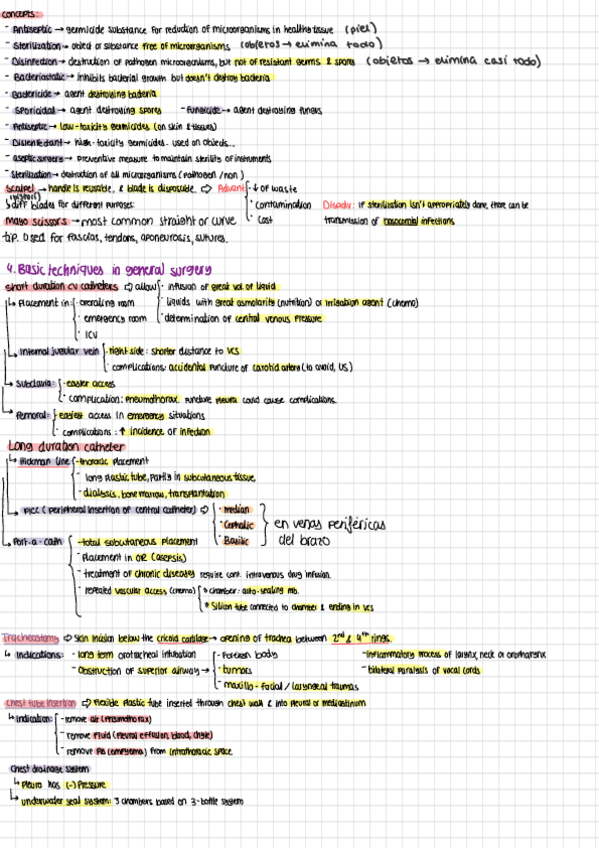 concepts:
- Antiseptic → germicide substance for reduction of microorganisms in healthy tissue (piel)
- Sterilization → object or substance free of microorganisms (objetos → elimina todo)
- Disinfection → destruction of pathogen microorganisms, but not of resistant germs & spores (objetos → elimina casi todo)
- Bacteriostatic → inhibits bacterial growth but doesn't destroy bacteria
- Bactericide → agent destroying bacteria
- Sporicidal → agent destroying spores - Fungicide → agent destroying fungus
- Antiseptic → low-toxicity germicides (on skin & tissues)
- Disinfectant → high-toxicity germicides. used on objects...
- aseptic surgery → preventive measure to maintain sterility of instruments
- Sterilization → destruction of all microorganisms (pathogen / non)
Scalpel → handle is reusable, & blade is disposable. ⇒ Advant - ↓ of waste
(bisturí)
↳ diff blades for different purposes · contamination Disadv: if sterilization isn't appropriately done, there can be
· Cost transmission of nosocomial infections
Mayo scissors → most common straight or curve
tip. Used for fascias, tendons, aponeurosis, sutures.
4. Basic techniques in general surgery
short duration CV catheters ⇒ allow · infusion of great vol. of liquid
↳ Placement in: · operating room · liquids with great osmolarity (nutrition) or irrigation agent (chemo)
· emergency room · determination of central venous pressure
· ICU
↳ Internal jugular vein · right side: shorter distance to VCS
· complications: accidental puncture of carotid artery (to avoid, US)
↳ Subclavia: · easier access
· complication: pneumothorax. puncture pleura could cause complications.
↳ Femoral: - easiest access in emergency situations
· complications: ↑ incidence of infection
Long duration catheter
↳ Hickman line - thoracic placement
- long plastic tube, partly in subcutaneous tissue
- dialysis, bone marrow, transplantation
↳ picc (peripheral insertion of central catheter) ⇒ · median
· Cephalic } en venas periféricas
· Basilic del brazo
↳ Port-a-cath - total subcutaneous placement
- Placement in OR (asepsis)
- treatment of chronic diseases require cont. intravenous drug infusion.
- repeated vascular access (chemo) * chamber: auto-sealing mb.
* Silicon tube connected to chamber & ending in VCS
Tracheostomy ⇒ Skin incision below the cricoid cartilage → opening of trachea between 2nd & 4th rings.
↳ Indications: - long term orotracheal intubation - Foreign body - inflammatory process of larynx, neck or oropharynx
- Obstruction of superior airway → - tumors - bilateral paralysis of vocal cords
- maxillo-facial / laryngeal traumas
Chest tube insertion ⇒ flexible plastic tube inserted through chest wall & into pleural or mediastinum
↳ Indication: - remove air (pneumothorax)
- remove fluid (pleural effusion, blood, chyle)
- remove pus (empyema) from intrathoracic space
Chest drainage system
↳ Pleura has (-) Pressure
↳ underwater seal system: 3 chambers based on 3-bottle system